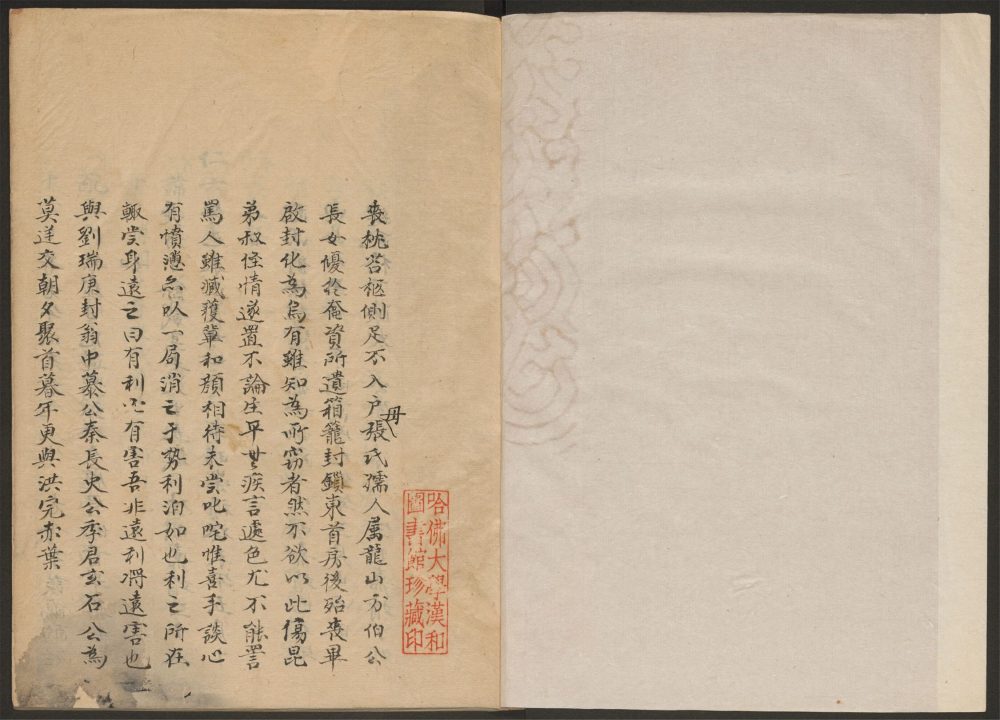 喪枕苫柩側足不入戶母張氏孺人属龍山方伯公
長女優於奩資所遺箱籠封鎖東首房後殆喪畢
啟封化為烏有雖知為所竊者然不欲以此傷昆
弟叔侄情遂置不論生平無疾言遽色尤不能詈
罵人雖臧獲輩和顏相待未嘗叱咤惟喜手談心
有憤懣亦以一局消之于勢利泊如也利之所在
輙嘗身遠之曰有利必有害吾非遠利將遠害也
與劉瑞庚封翁中慕公秦長史公季君玄石公為
莫逆交朝夕聚首暮年更與洪完赤葉
哈佛大學漢和
圖書館珍藏印